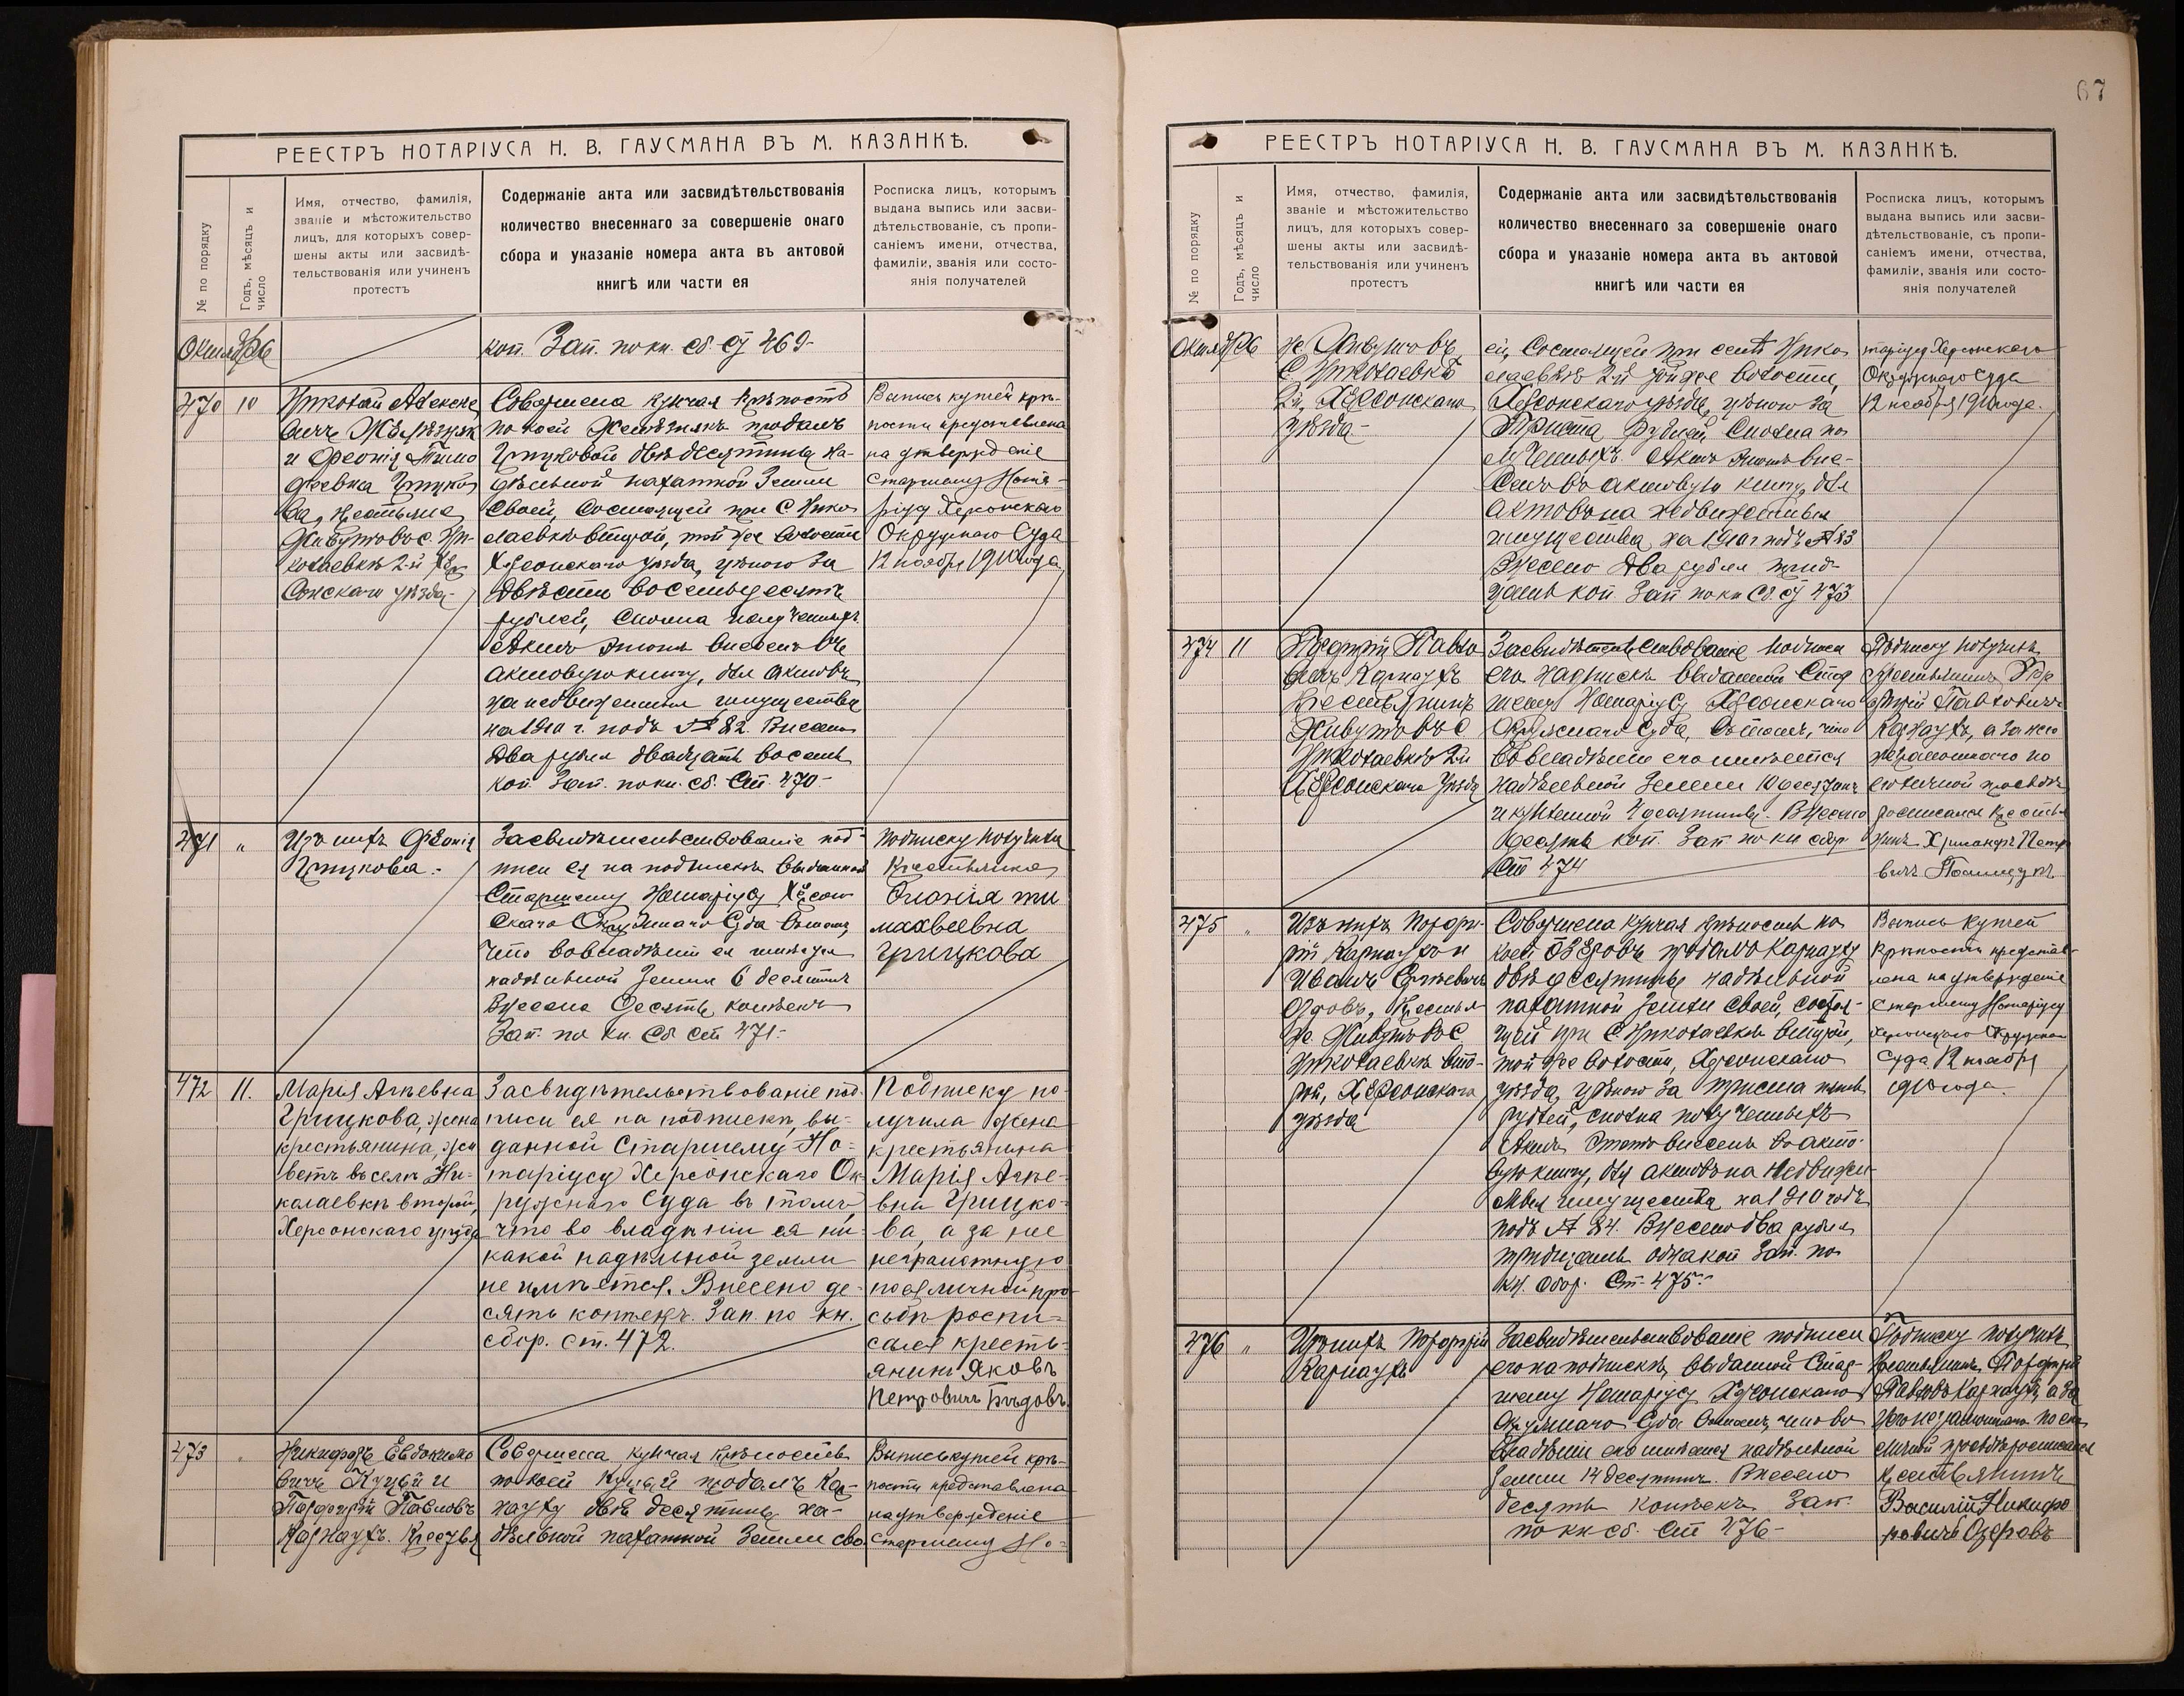 67
РЕЕСТРЪ НОТАРІУСА Н. В. ГАУСМАНА ВЪ М. КАЗАНКѢ.
№ по порядку
Годъ, мѣсяцъ и
число
Имя, отчество, фамилія,
званіе и мѣстожительство
лицъ, для которыхъ совер-
шены акты или засвидѣ-
тельствованія или учиненъ
протестъ
Содержаніе акта или засвидѣтельствованія
количество внесеннаго за совершеніе онаго
сбора и указаніе номера акта въ актовой
книгѣ или части ея
Росписка лицъ, которымъ
выдана выпись или засви-
дѣтельствованіе, съ пропи-
саніемъ имени, отчества,
фамиліи, званія или состо-
янія получателей
коп. Зап. по кн. сб. ст 469-
470 10
Николай Алексѣе
вичъ Желѣзнякъ
и Ѳеонія Тимо
ѳеевна Грицко
ва, крестьяне
живутъ въ с. Ни-
колаевкѣ 2-й Хер
сонскаго уѣзда-
Совершена купчая крѣпость
по коей Желѣзнякъ продалъ
Грицковой двѣ десятины на-
дѣльной пахатной земли
своей, состоящей при с Нико
лаевкѣ второй, той же волости
Херсонскаго уѣзда, цѣною за
двѣсти восемьдесятъ
рублей, сполна полученныхъ
Актъ этотъ внесенъ въ
актовую книгу, для актовъ
на недвижимыя имущества
на 1910 г. подъ № 82. Внесено
два рубля двадцать восемь
коп. Зап. по кн. сб. Ст. 470-
Выпись купчей крѣ-
пости представлена
на утвержденіе
Старшему Нота-
ріусу Херсонскаго
Окружнаго Суда
12 ноября 1910 года
471 "
Изъ нихъ Ѳеонія
Грицкова.-
Засвидѣтельствованіе под-
писи ея на подпискѣ выданной
Старшему Нотаріусу Херсон
скаго Окружнаго Суда въ томъ,
что во владѣніи ея имѣется
надѣльной земли 6 десятинъ
Внесено десять копѣекъ
Зап. по кн. сб ст 471.-
Подписку получила
Крестьянка
махвеевна
Грицкова
472 11.
Марія Агѣевна
Грицкова, жена
крестьянина, жи
ветъ въ селѣ Ни-
колаевкѣ второй,
Херсонскаго уѣзда
Засвидѣтельствованіе под-
писи ея на подпискѣ, вы-
данной Старшему Но-
таріусу Херсонскаго Ок
ружнаго Суда въ томъ,
что во владѣніи ея ни-
какой надѣльной земли
не имѣется. Внесено де-
сять копѣекъ. Зап. по кн.
сбор. ст. 472.
Подписку по-
лучила жена
крестьянина
Марія Агѣе-
вна Грицко-
ва, а за нее
неграмотную
по ея личной про
сьбѣ роспи-
сался кресть-
янинъ Яковъ
Петровичъ Бѣдовъ.
473 "
Никифоръ Евдокимо
вичъ Куцый и
Порфирій Павловъ
Карнаухъ. Крестья
Совершена купчая крѣпость
по коей Куцый продалъ Кар-
науху двѣ десятины на-
дѣльной пахатной земли сво-
Выпись купчей крѣ-
пости представлена
на утвержденіе
Старшему Но-
РЕЕСТРЪ НОТАРІУСА Н. В. ГАУСМАНА ВЪ М. КАЗАНКѢ.
№ по порядку
Годъ, мѣсяцъ и
число
Имя, отчество, фамилія,
званіе и мѣстожительство
лицъ, для которыхъ совер-
шены акты или засвидѣ-
тельствованія или учиненъ
протестъ
Содержаніе акта или засвидѣтельствованія
количество внесеннаго за совершеніе онаго
сбора и указаніе номера акта въ актовой
книгѣ или части ея
Росписка лицъ, которымъ
выдана выпись или засви-
дѣтельствованіе, съ пропи-
саніемъ имени, отчества,
фамиліи, званія или состо-
янія получателей
не живутъ въ
с Николаевкѣ
2й, Херсонскаго
уѣзда.-
ей, состоящей при селѣ Нико
лаевкѣ 2-й той же волости,
Херсонскаго уѣзда, цѣною за
триста рублей, сполна по
лученныхъ. Актъ этотъ вне-
сенъ въ актовую книгу, для
актовъ на недвижимыя
имущества на 1910 г подъ № 83
Внесено два рубля трид-
цать коп. Зап по кн сб. ст 473
таріусу Херсонскаго
Окружнаго Суда
12 ноября 1910 года.
474 11
Порфирій Павло
вичъ Карнаухъ
Крестьянинъ
живутъ въ с
Николаевкѣ 2-й
Херсонскаго уѣзда
Засвидѣтельствованіе подписи
его на подпискѣ выданной Стар
шему Нотаріусу Херсонскаго
Окружнаго Суда, въ томъ, что
во владѣніи его имѣется
надѣльной земли 10 десятинъ
и купленной 4 десятины. Внесено
десять коп. Зап по кн сбор
Ст 474
Подписку получилъ
крестьянинъ Пор
фирій Павловичъ
Карнаухъ, а за него
неграмотнаго по
его личной просьбѣ
росписался Крестья
нинъ Петро
вичъ
475 "
Изъ нихъ Порфи-
рій Карнаухъ и
Иванъ
Крестья
не живутъ въ с
Николаевкѣ вто-
рой, Херсонскаго
уѣзда
Совершена купчая крѣпость по
коей Озеровъ продалъ Карнауху
двѣ десятины надѣльной
пахатной земли своей, состоя-
щей при с Николаевкѣ второй,
той же волости, Херсонскаго
уѣзда, цѣною за триста пять
рублей, сполна полученныхъ
Актъ этотъ внесенъ въ акто-
вую книгу, для актовъ на недвижи-
мыя имущества на 1910 годъ
подъ № 84. Внесено два рубля
тридцать одна коп Зап. по
кн. сбор. Ст. 475.-
Выпись купчей
крѣпости представ-
лена на утвержденіе
Старшему Нотаріусу
Херсонскаго Окружнаго
Суда 12 ноября
1910 года.
476 "
Изъ нихъ Порфирій
Карнаухъ
Засвидѣтельствованіе подписи
его на подпискѣ, выданной Стар-
шему Нотаріусу Херсонскаго
Окружнаго Суда въ томъ, что во
владѣніи его имѣется надѣльной
земли 14 десятинъ. Внесено
десять копѣекъ Зап.
по кн сб. Ст 476-
Подписку получилъ
Крестьянинъ Порфирій
Павловъ Карнаухъ, а за
него неграмотнаго по его
личной просьбѣ росписался
Крестьянинъ
Василій Никифо
ровичъ Озеровъ